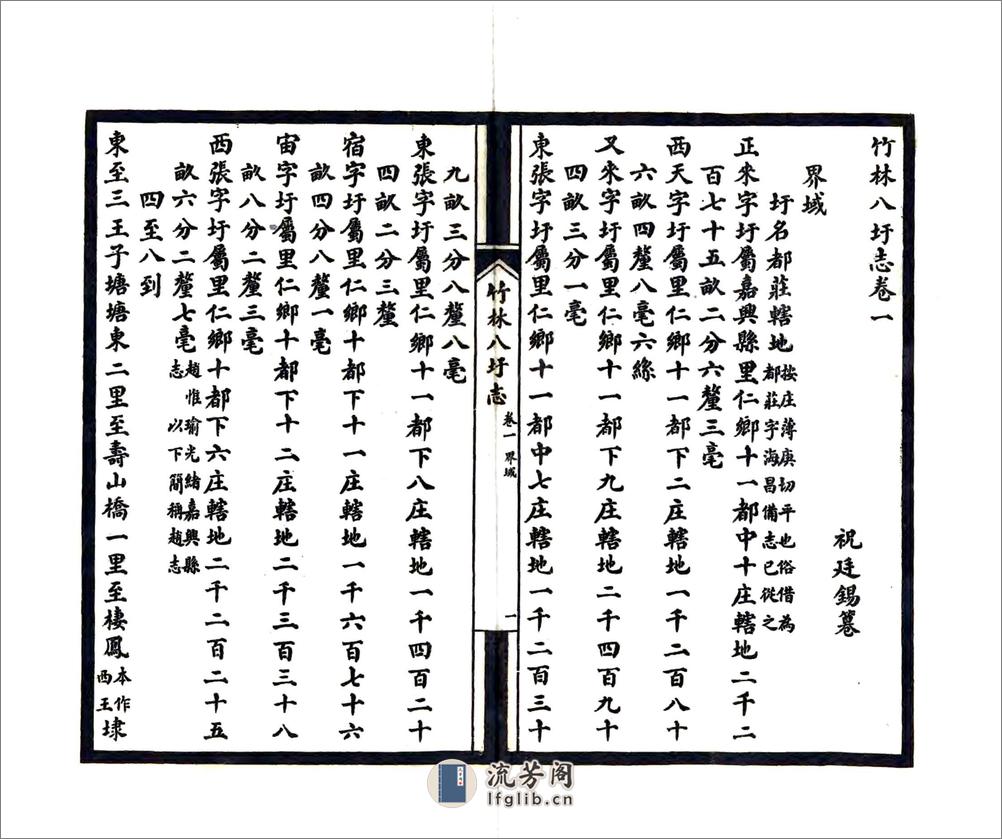 竹林八圩志卷一
祝廷錫纂
界域
圩名都莊轄地按庄薄庚切平也俗借為
都莊字海昌備志已從之
正來字圩屬嘉興縣里仁鄉十一都中十庄轄地二千二
百七十五畝二分六釐三毫
西天字圩屬里仁鄉十一都下二庄轄地一千二百八十
六畝四釐八毫六絲
又來字圩屬里仁鄉十一都下九庄轄地二千四百九十
四畝三分一毫
東張字圩屬里仁鄉十一都中七庄轄地一千二百三十
竹林八圩志 卷一 界域 一
九畝三分八釐八毫
東張字圩屬里仁鄉十一都下八庄轄地一千四百二十
四畝二分三釐
宿字圩屬里仁鄉十都下十一庄轄地一千六百七十六
畝四分八釐一毫
宙字圩屬里仁鄉十都下十二庄轄地二千三百三十八
畝八分二釐三毫
西張字圩屬里仁鄉十都下六庄轄地二千二百二十五
畝六分二釐七毫趙惟瑜光緒嘉興縣
志以下簡稱趙志
四至八到
東至三王子塘塘東二里至壽山橋一里至棲鳳本作
西王埭
流芳阁
lfglib.cn